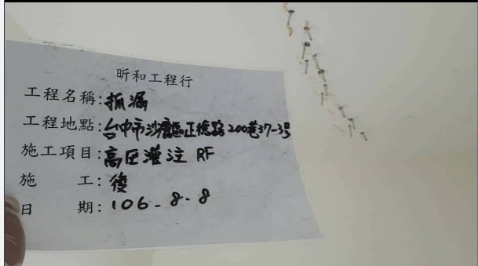 昕和工程行
工程名稱:抓漏
工程地點:台中市沙鹿區正德路200巷37-3號
施工項目:高压灌注 RF
施　工:後
日　期:106-8-8